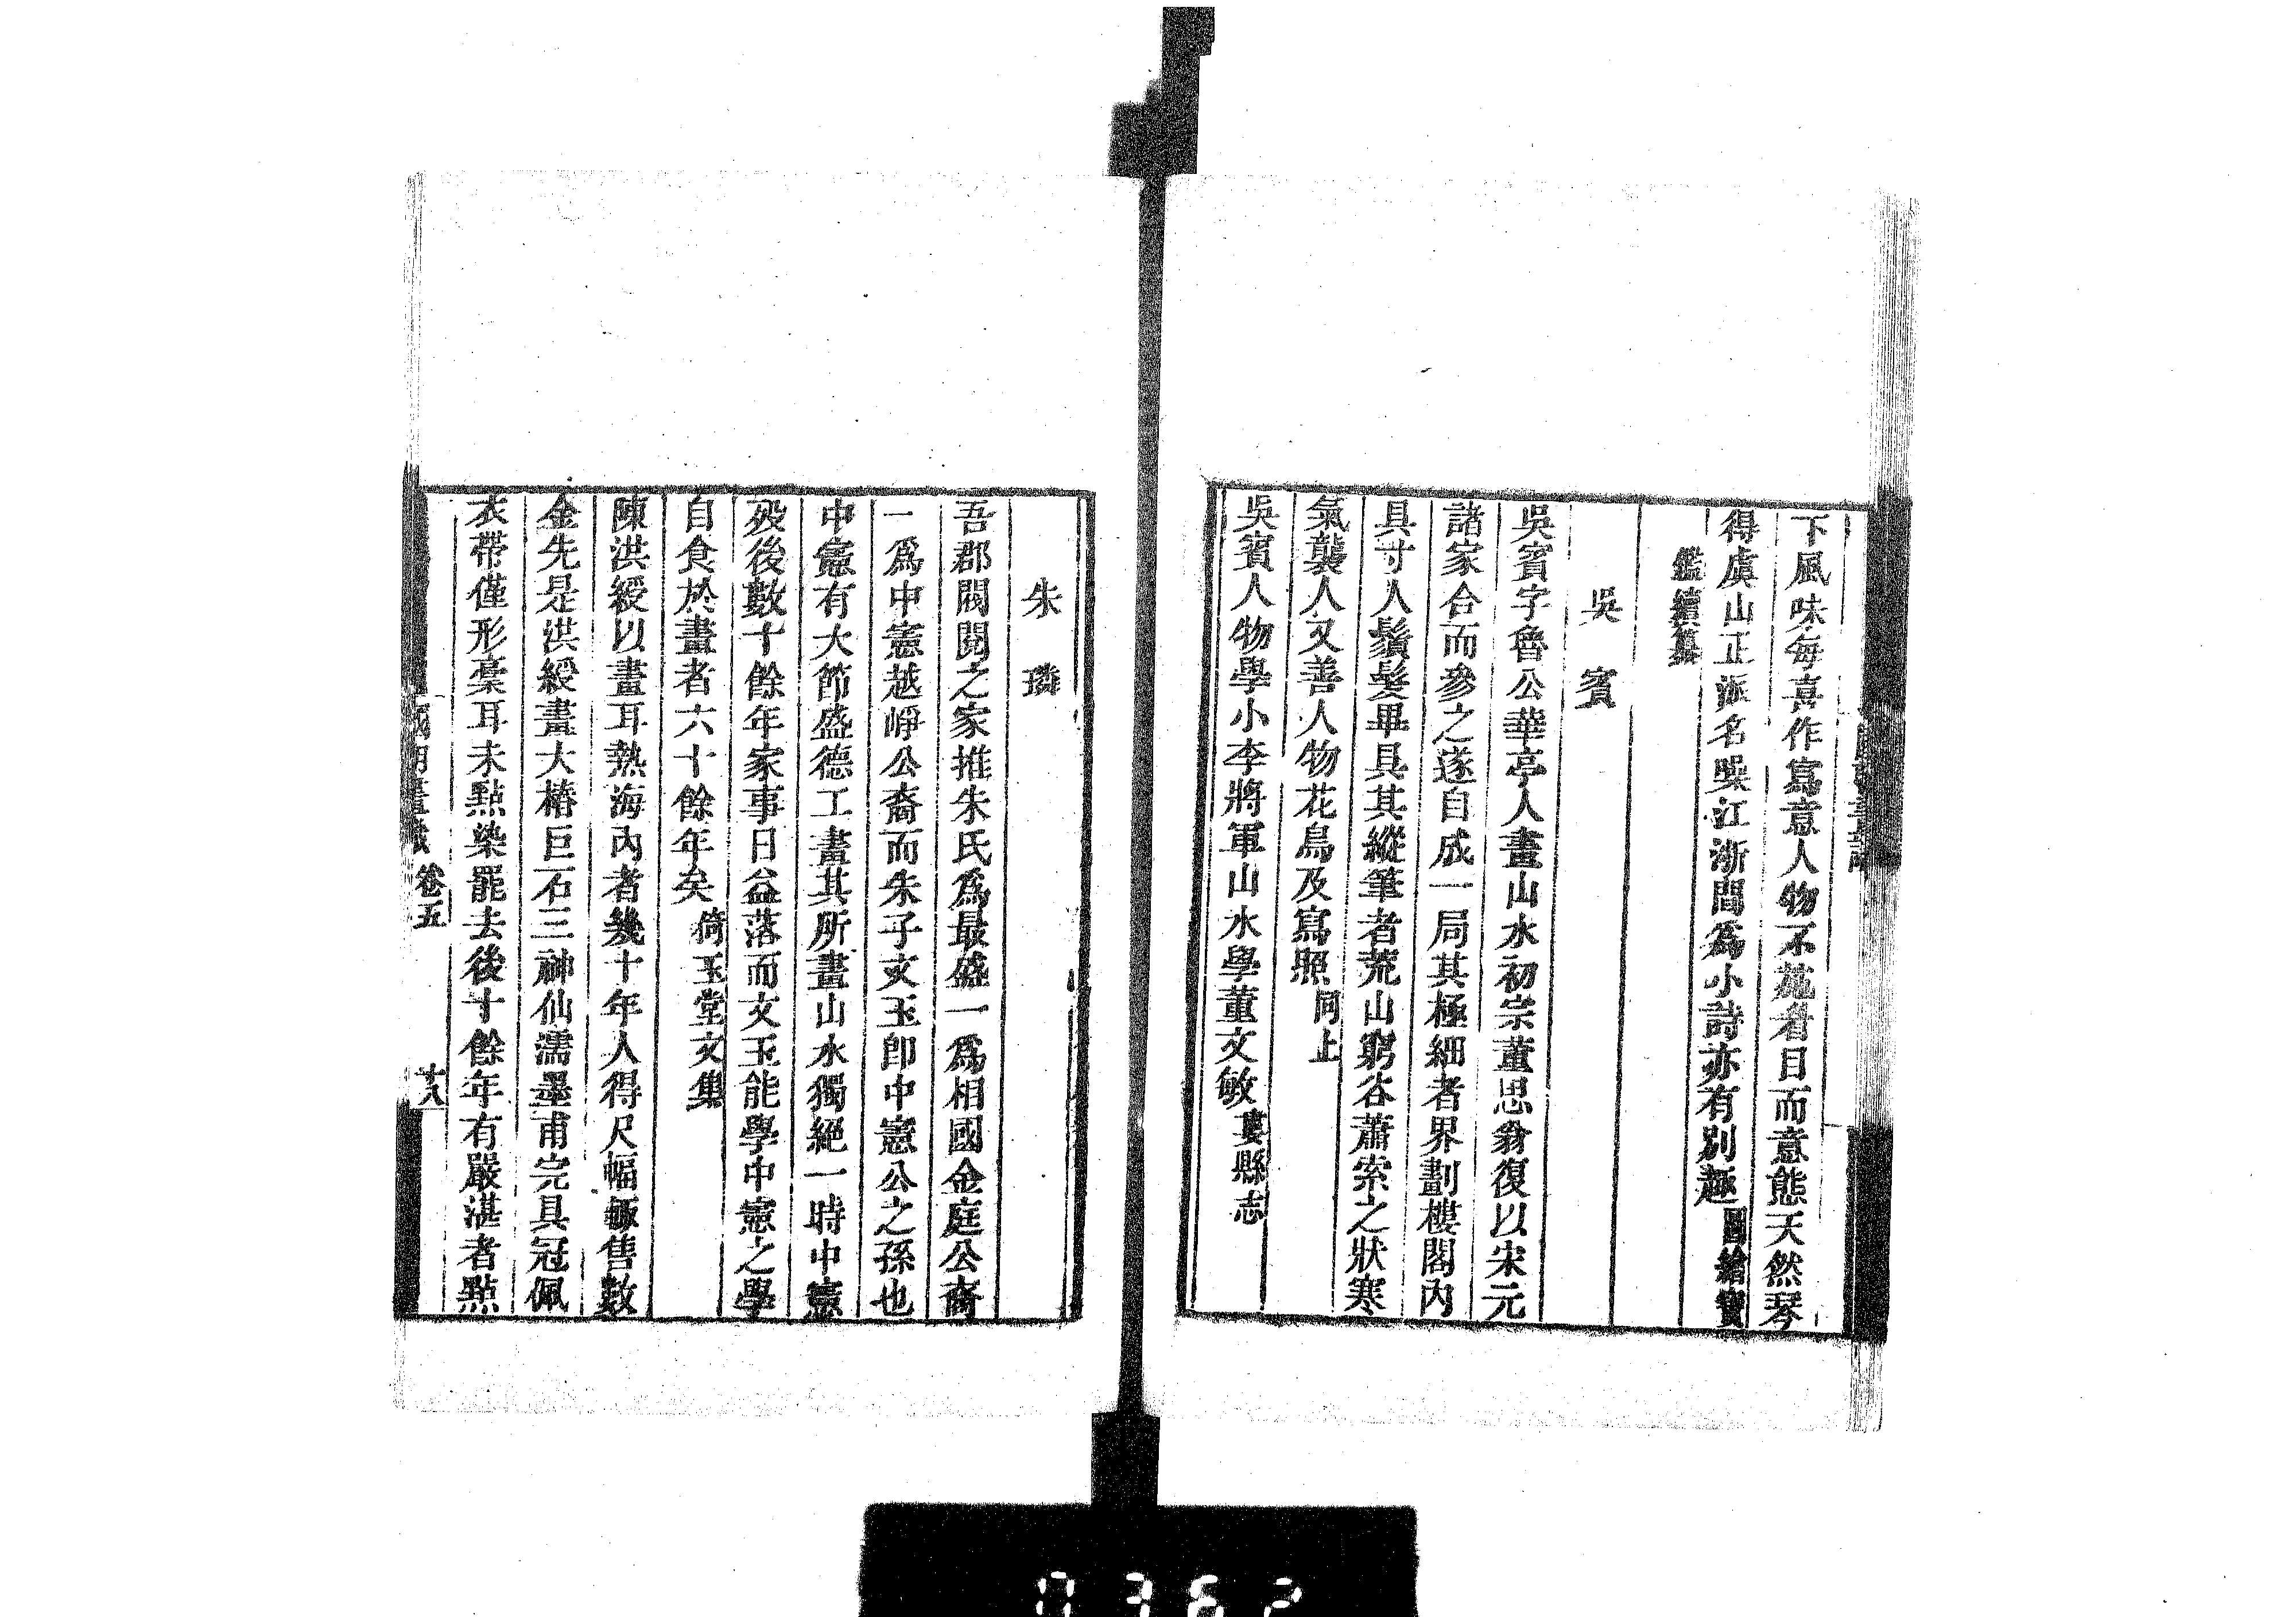 下風味每喜作寫意人物不苑着目而意態天然琴
得虞山正派名噪江浙間為小詩亦有別趣圖繪寶
鑑續纂
吳賓
吳賓字魯公華亭人畫山水初宗董思翁復以宋元
諸家合而參之遂自成一局其極細者界劃樓閣內
具寸人鬚髮畢具其縱筆者荒山窮谷蕭索之狀寒
氣襲人又善人物花鳥及寫照同上
吳賓人物學小李將軍山水學董文敏婁縣志
朱璘
吾郡閥閱之家推朱氏為最盛一為相國金庭公裔
一為中憲越崢公裔而朱子文玉即中憲公之孫也
中憲有大節盛德工畫其所畫山水獨絕一時中憲
歿後數十餘年家事日益落而文玉能學中憲之學
自食於畫者六十餘年矣倚玉堂文集
陳洪綬以畫耳熱海內者幾十年人得尺幅輒售數
金先是洪綬畫大椿巨石三神仙濡墨甫完具冠佩
衣帶僅形稾耳未點染罷去後十餘年有嚴湛者點
國朝畫識 卷五 十八
0362